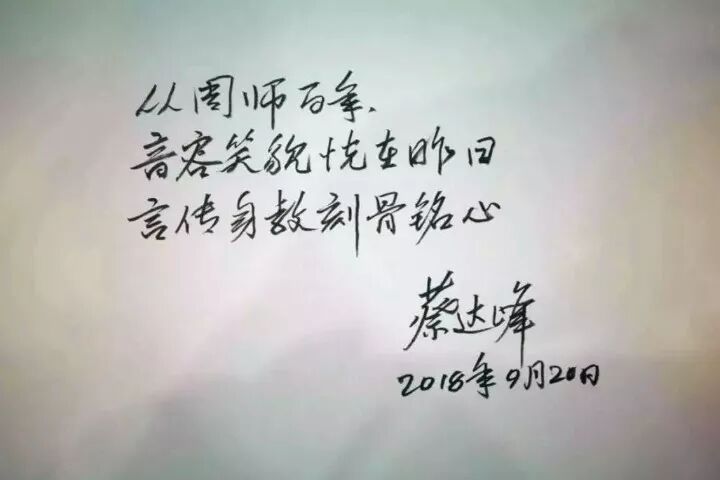 从周师百年、
音容笑貌恍在昨日
言传身教刻骨铭心
蔡达峰
2018年9月20日